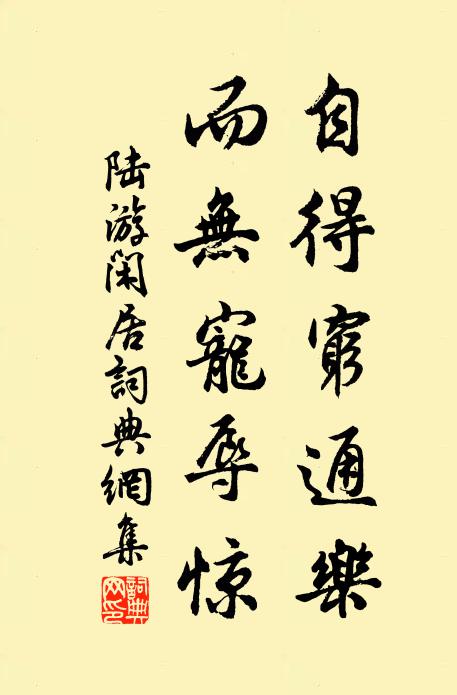 自得窮通樂
而無寵辱惊
陸游闲居詞典網集
詞典網印